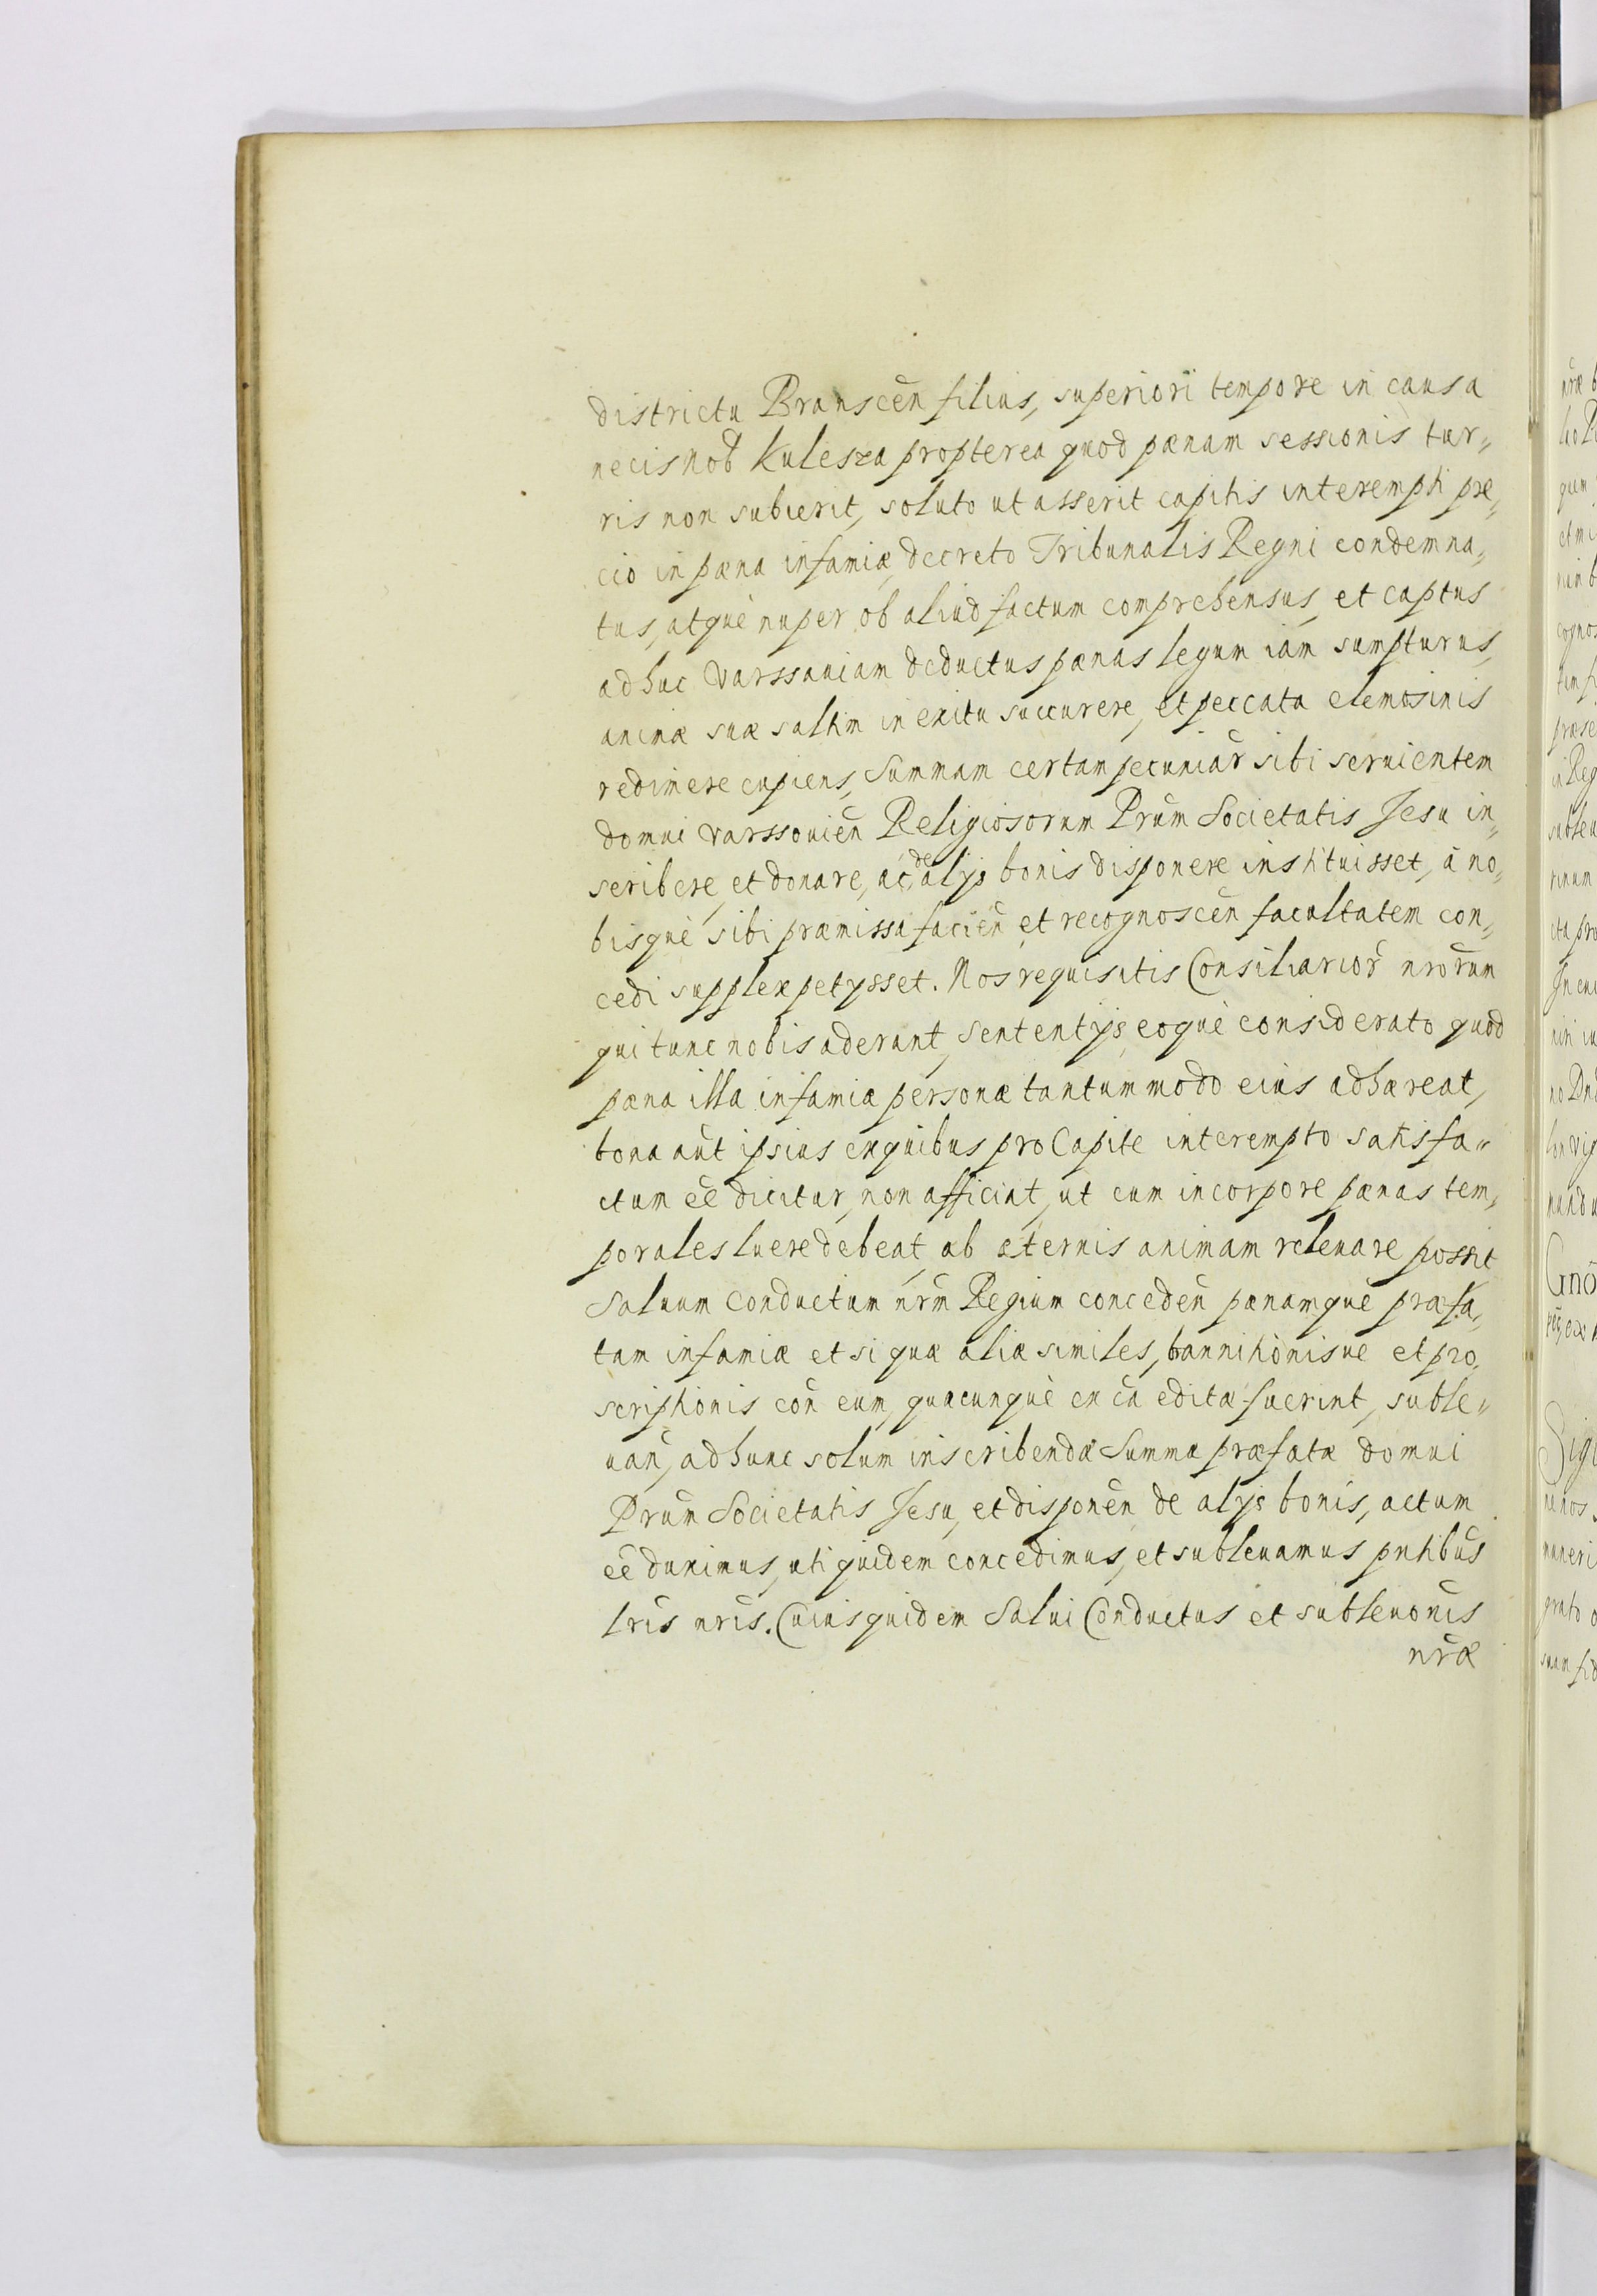 districtu Branscen̄ filius, superiori tempore in causa
necis Nob̄ Kulesza propterea quod pænam sessionis tur„
ris non subierit, soluto ut asserit capitis interempti pre„
cio in pæna infamiæ decreto Tribunalis Regni condemna„
tus, atque nuper ob aliud factum comprehensus, et captus
adhuc Varssauiam deductus pænas legum iam sumpturus,
animæ suæ saltim in exitu succurere, et peccata elemosinis
redimere cupiens, Summam certam pecuniar̄ sibi seruientem
domui Varssouien̄ Religiosorum Prum̄ Societatis Jesu in„
scribere, et donare, ac de alys bonis disponere instituisset, à no„
bisque sibi præmissa facien̄ et recognoscen̄ facultatem con„
cedi supplex petysset. Nos requisitis Consiliarior̄ nrorum̄
qui tunc nobis aderant, sententys, eoque considerato quod
pæna illa infamiæ personæ tantummodo eius adhæreat,
bona aut̄ ipsius ex quibus pro Capite interempto satisfa„
ctum eē dicitur, non afficiat, ut cum in corpore pænas tem„
porales luere debeat, ab æternis animam releuare possit
Saluum Conductum nrm̄ Regium conceden̄ pænamque præfa„
tam infamiæ et si quæ aliæ similes, bannitionisue et pro„
scriptionis con̄ eum, quacunque ex cā editæ fuerint, suble„
uan̄, ad hunc solum inscribendæ Summæ præfatæ domui
Prum̄ Societatis Jesu, et disponen̄ de alys bonis, actum
eē duximus, uti quidem concedimus, et subleuamus pntibus̄
lris̄ nris̄. Cuius quidem Salui Conductus et subleuonis̄
nrӕ̄